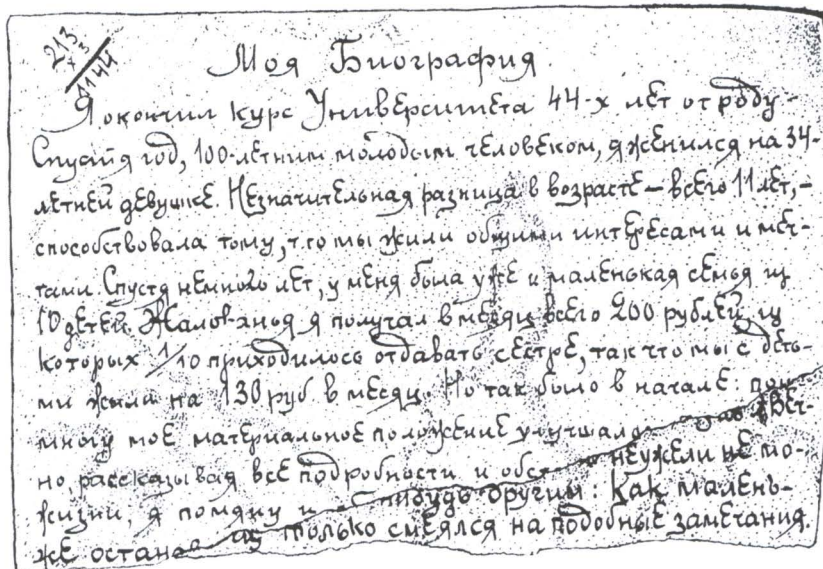 213
×3
1144
Моя Биография.
Я окончил курс Университета 44-х лет от роду.
Спустя год, 100-летним молодым человеком, я женился на 34-
летней девушке. Незначительная разница в возрасте — всего 11 лет, —
способствовала тому, что мы жили общими интересами и меч-
тами. Спустя немного лет, у меня была уже и маленькая семья из
10 детей. Жалованья я получал в месяц всего 200 рублей, из
которых 1/10 приходилось отдавать сестре, так что мы с деть-
ми жили на 130 руб. в месяц. Но так было в начале: пон
многу мое материальное положение улучшало
но, рассказывая все подробности и обс неужели не мо-
жизни, я помяну и нибудь другим: Как малень-
же остана из только смеялся на подобные замечания.